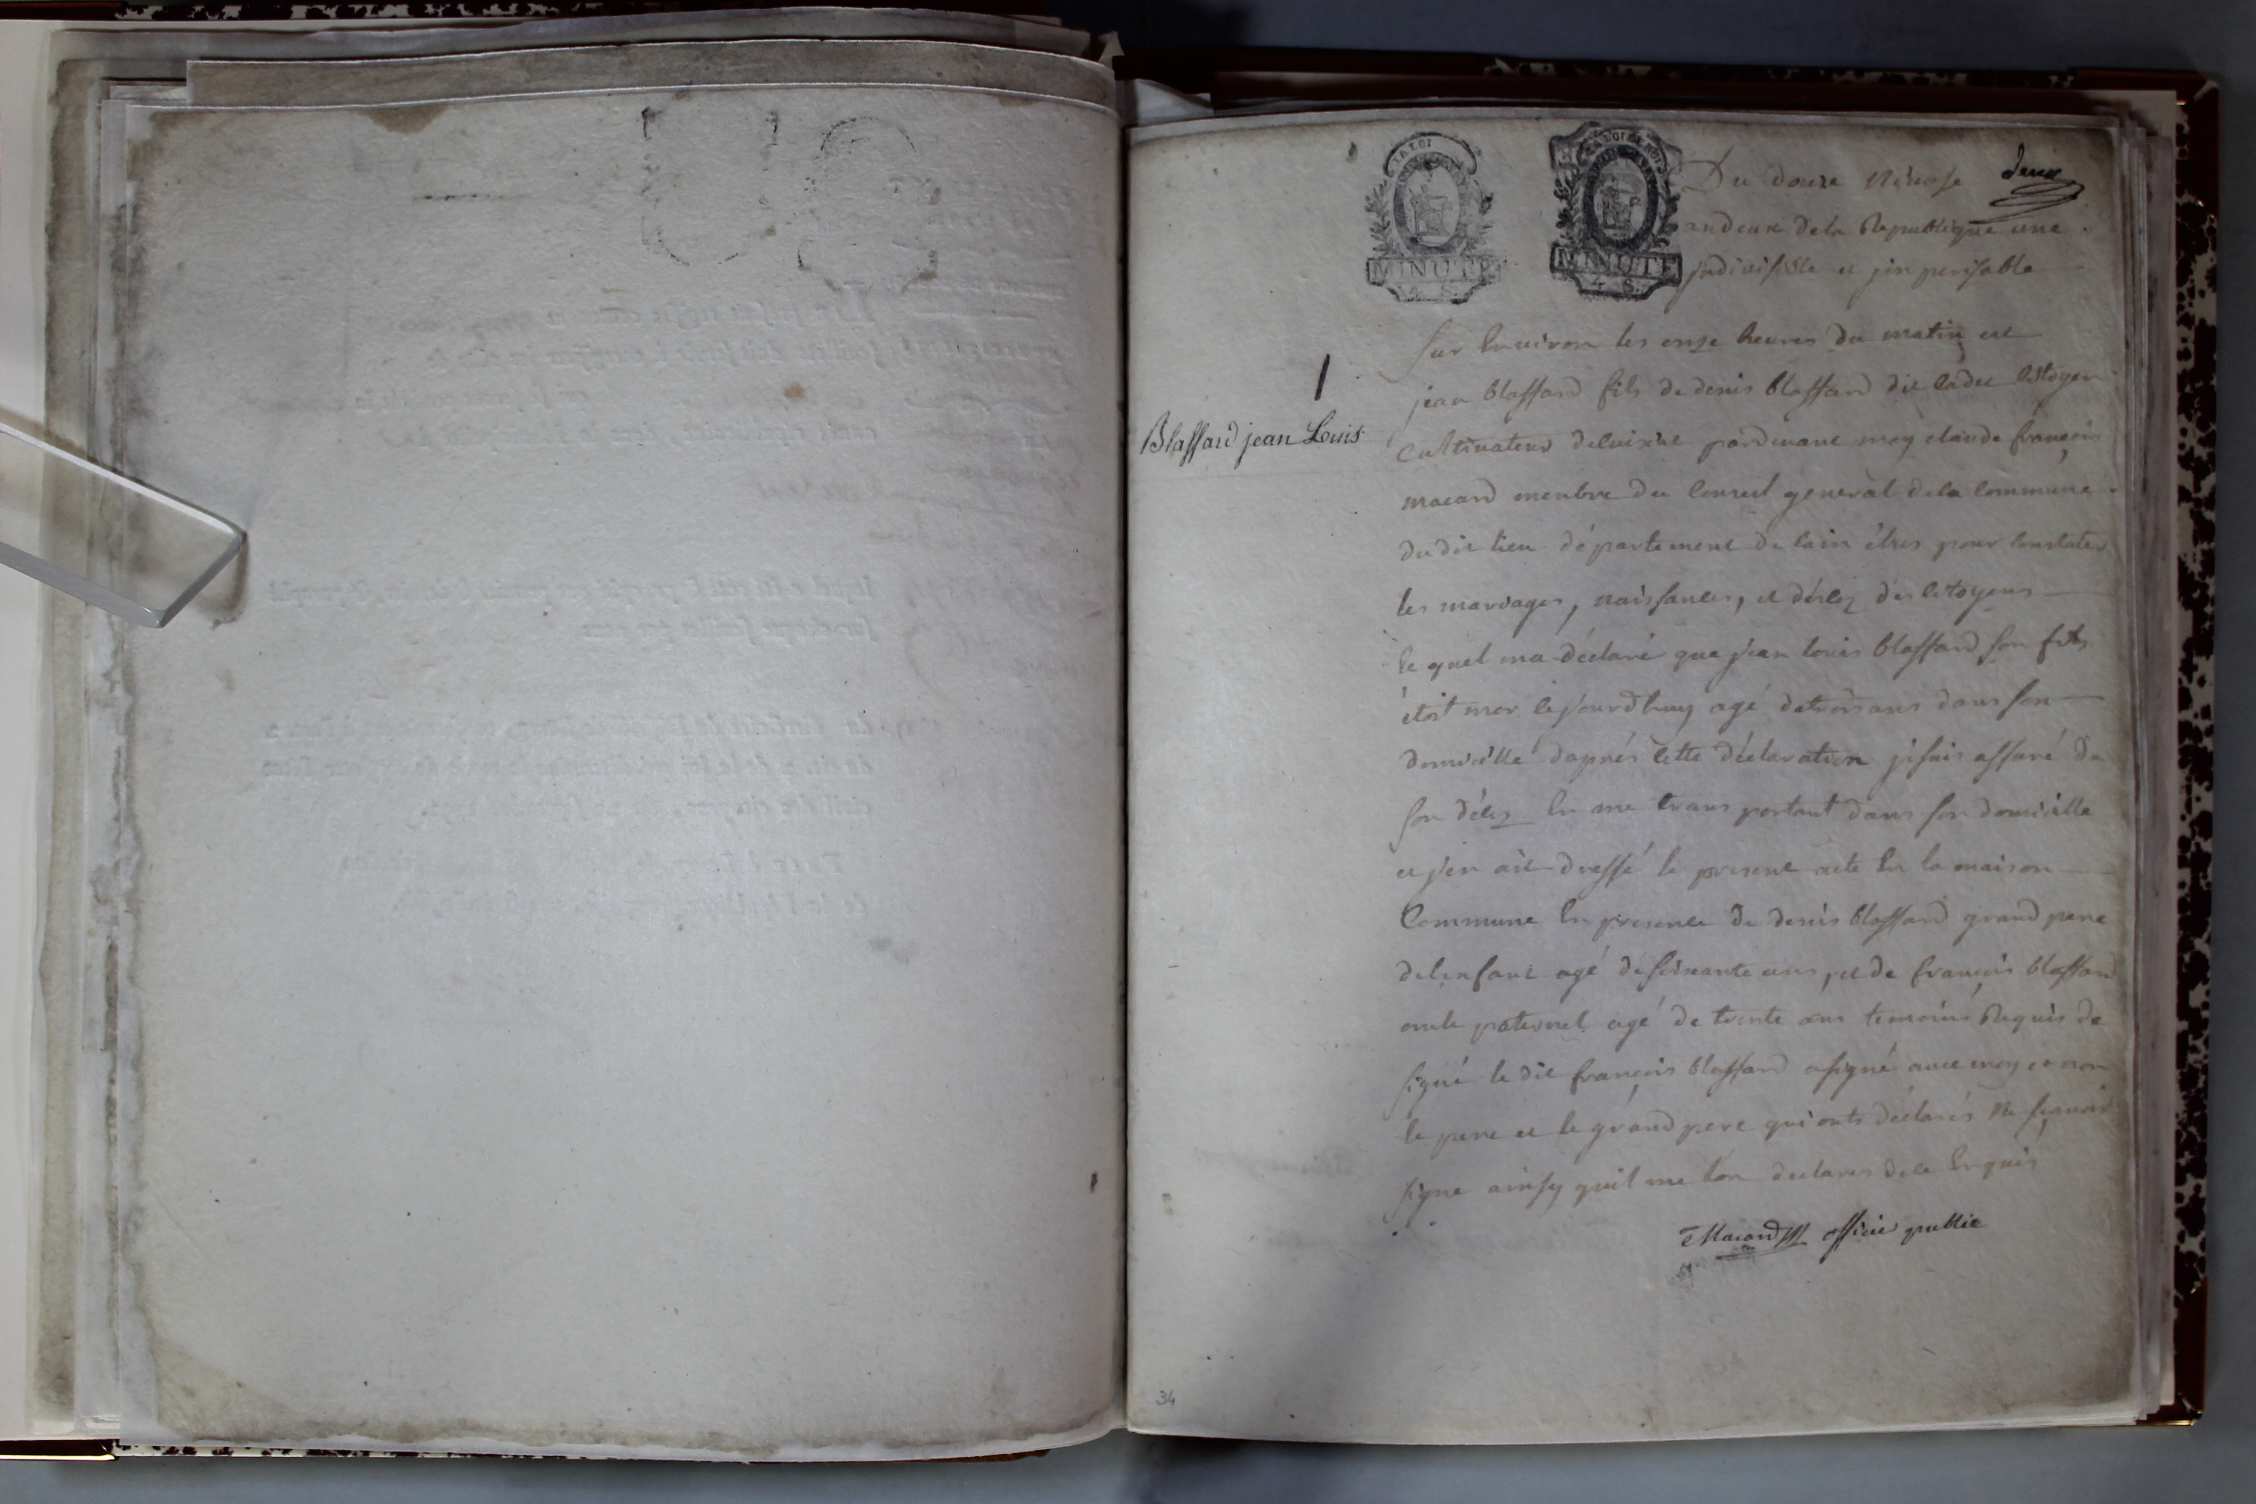 deux
LA LOI
MINUTE
4 S.
LA LOI
MINUTE
4 S.
Du douze Nivose
an deux de la Republique une
jndivisible et jinperisable
sur Environ les onze heures du matin est
jean blaffard fils de denis blaffard dit cadet Citoyen
1
Blaffard jean Louis
Cultivateur pardevant moy claude françois
macard menbre du Conseil general de la Commune
du dit lieu département de lain élus pour Constater
les mariages, naissances, et décez des Citoyens
le quel ma déclaré que jean louis blaffard son fils
étoit mor cejourdhuy agé de trois ans dans son
domicille daprés Cette déclaration je suis assuré de
son décez En me trans portant dans son domicille
et jen ait dressé le present acte En la maison
Commune En presence de denis blaffard grand pere
delenfant agé de soixante ans, et de françois blaffard
oncle paternel agé de trente ans temoins Requis de
signé le dit françois blaffard a signé avec moy et non
le pere et le grand pere qui onts déclarés Ne sçavoir
signe ainsy quil me lon declares de ce Enquis
Macard officie public
34